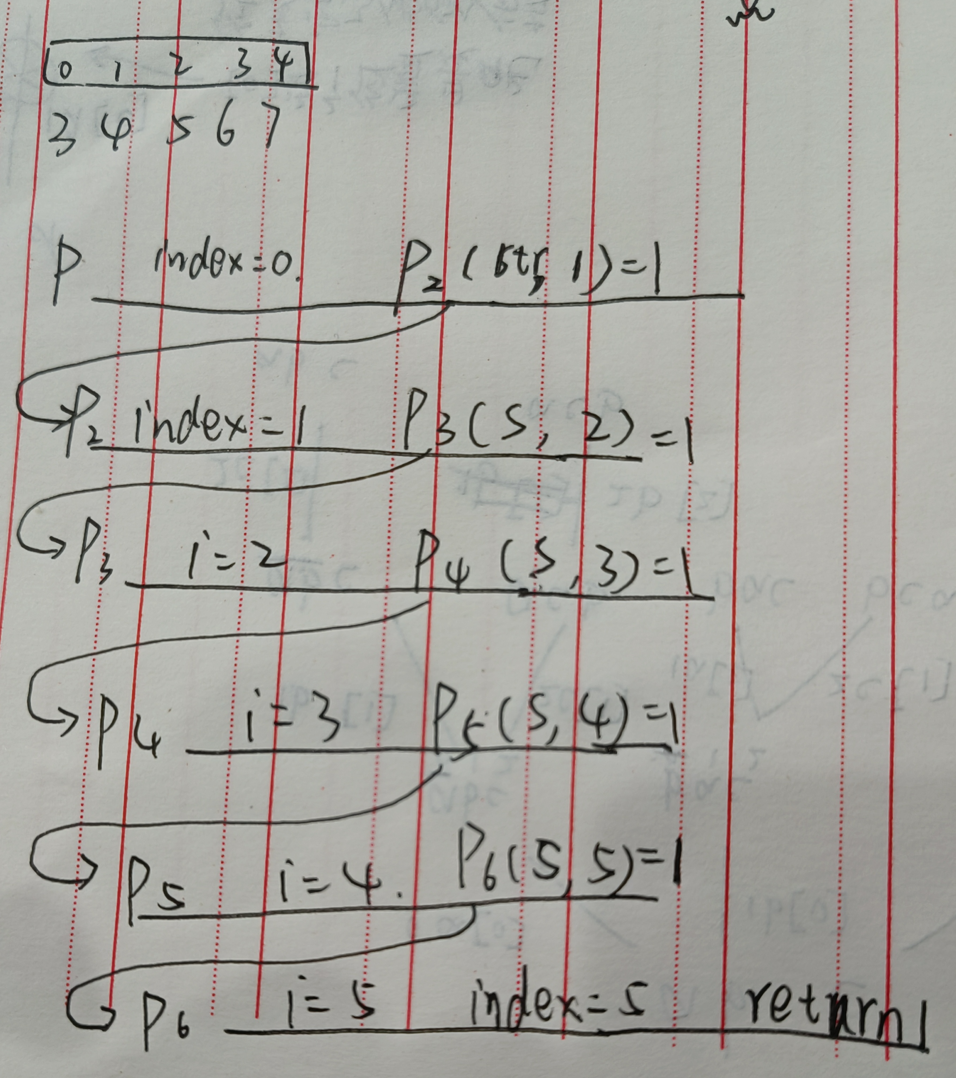 0 1 2 3 4
3 4 5 6 7
P index=0. P2(str, 1)=1
P2 index=1 P3(S, 2)=1
P3 i=2 P4(S, 3)=1
P4 i=3 P5(S, 4)=1
P5 i=4. P6(S, 5)=1
P6 i=5 index=5 return 1